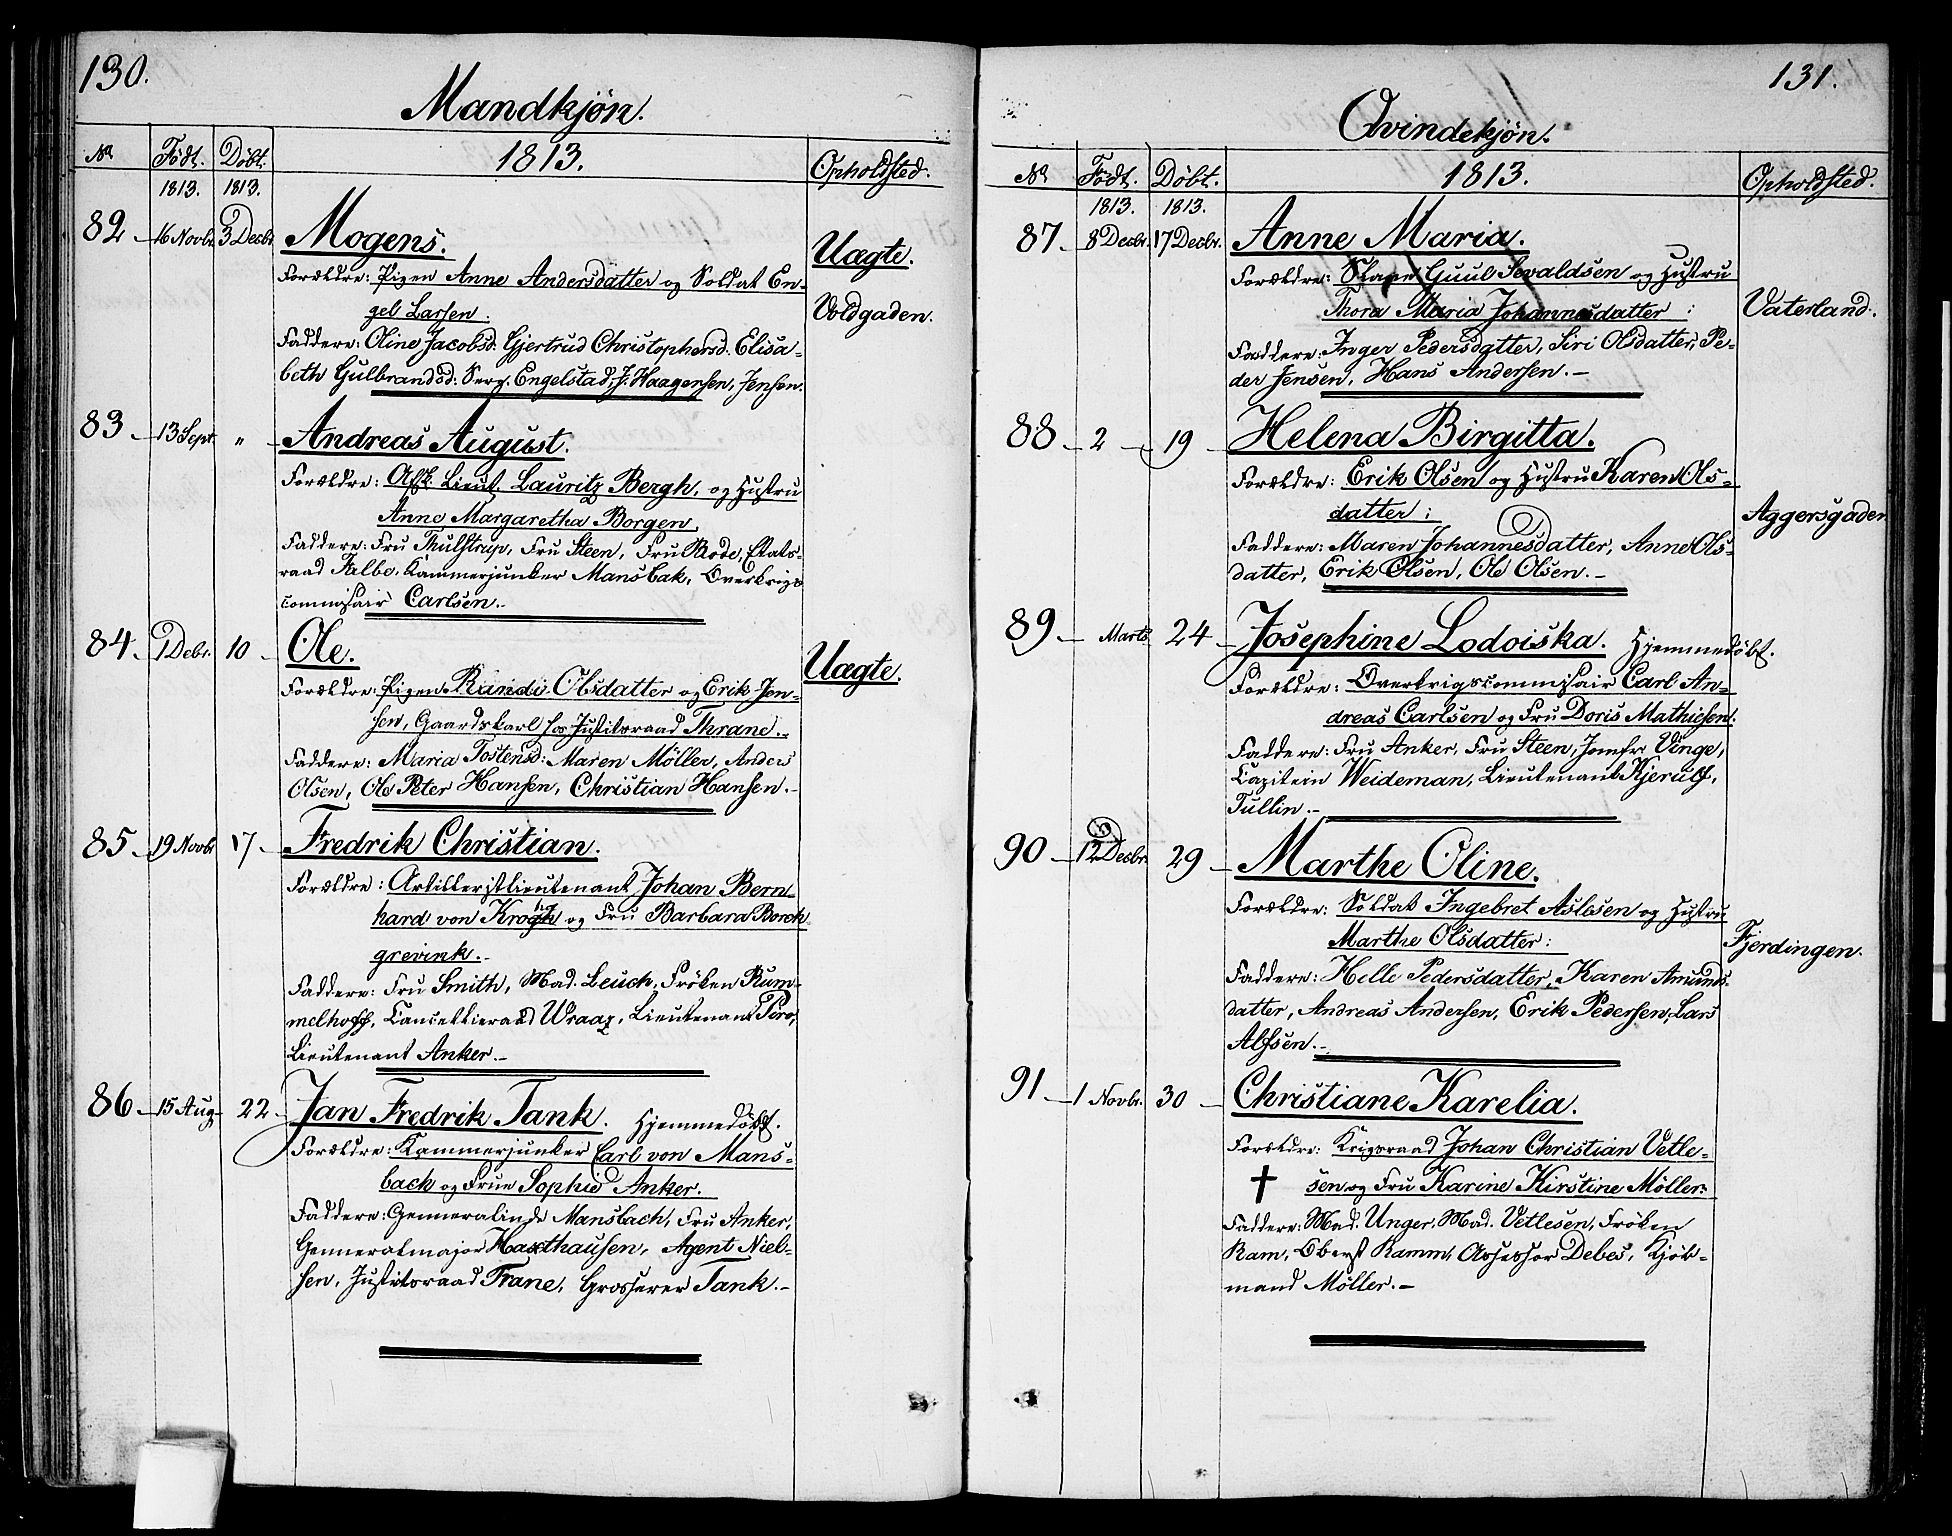 130.
Mandkjön.
No Födt. Döbt. 1813. Opholdsted.
1813. 1813.
82 16 Novbr. 3 Decbr. Mogens. Uægte.
Forældre: Pigen Anne Andersdatter og Soldat En-
gel Larsen: Voldgaden.
Faddere: Oline Jacobsd: Gjertrud Christophersd. Elisa-
beth Gulbrandsd: Serg. Engelstad, J. Haagensen, Jensen.
83 13 Sept. " Andreas August.
Forældre: Afsk. Lieut. Lauritz Bergh, og Hustru
Anne Margaretha Borgen.
Faddere: Fru Thulstrup, Fru Steen, Fru Bode, Etats-
raad Falbe, Kammerjunker Mansbak, Overkrigs
commisair Carlsen.-
84 1 Decbr. 10 Ole. Uægte.
Forældre: Pigen Randi Olsdatter og Erik Jen-
sen, Gaardskarl hos Justitsraad Thrane.-
Faddere: Maria Tostensd: Maren Möller, Anders
Olsen, Ole Peter Hansen, Christian Hansen.-
85 19 Novbr 17 Fredrik Christian.
Forældre: Artilleristlieutenant Johan Bern-
hard von Krogh og Fru Barbara Borch
grevink.-
Faddere: Fru Smith, Mad. Leuch, Fröken Rum-
melhoff, Cancellieraad Wraaz, Lieutenant Piro,
Lieutenant Anker.-
86 15 Aug. 22 Jan Fredrik Tank. Hjemmedöbt.
Forældre: Kammerjunker Carl von Mans-
back og Frue Sophie Anker.
Faddere: Generalinde Mansbach, Fru Anker,
Generalmajor Haxthausen, Agent Niel-
sen, Justitsraad Trane, Grosserer Tank.-
131.
Qvindekjön.
No Födt. Döbt. 1813. Opholdsted.
1813. 1813.
87 8 Decbr. 17 Decbr. Anne Maria.
Forældre: Guul Sevaldsen og Hustru
Thora Maria Johannesdatter: Vaterland.
Faddere: Inger Pedersdatter, Siri Olsdatter, Pe-
der Jensen, Hans Andersen.-
88 2 19 Helena Birgitta.
Forældre: Erik Olsen og Hustru Karen Ols-
datter: Aggersgaden
Faddere: Maren Johannesdatter, Anne Ols-
datter, Erik Olsen, Ole Olsen.-
89 Marts 24 Josephine Lodoiska. Hjemmedöbt.
Forældre: Overkrigscommisair Carl An-
dreas Carlsen og Fru Doris Mathiesen.
Faddere: Fru Anker, Fru Steen, Jomfr Vinge,
Capitein Weideman, Lieutenant Kjerulf,
Tullin.-
90 12 Decbr. 29 Marthe Oline.
Forældre: Soldat Ingebret Aslesen og Hustru
Marthe Olsdatter: Fjerdingen.
Faddere: Helle Pedersdatter, Karen Amunds-
datter, Andreas Andersen, Erik Pedersen, Lars
Alfsen.-
91 1 Novbr. 30 Christiane Karelia.
Forældre: Krigsraad Johan Christian Vetle-
† sen og Fru Karine Kirstine Möller:
Faddere: Mad. Unger, Mad. Vetlesen, Fröken
Ram, Oberst Ramm, Assessor Debes, Kjöb-
mand Möller.-